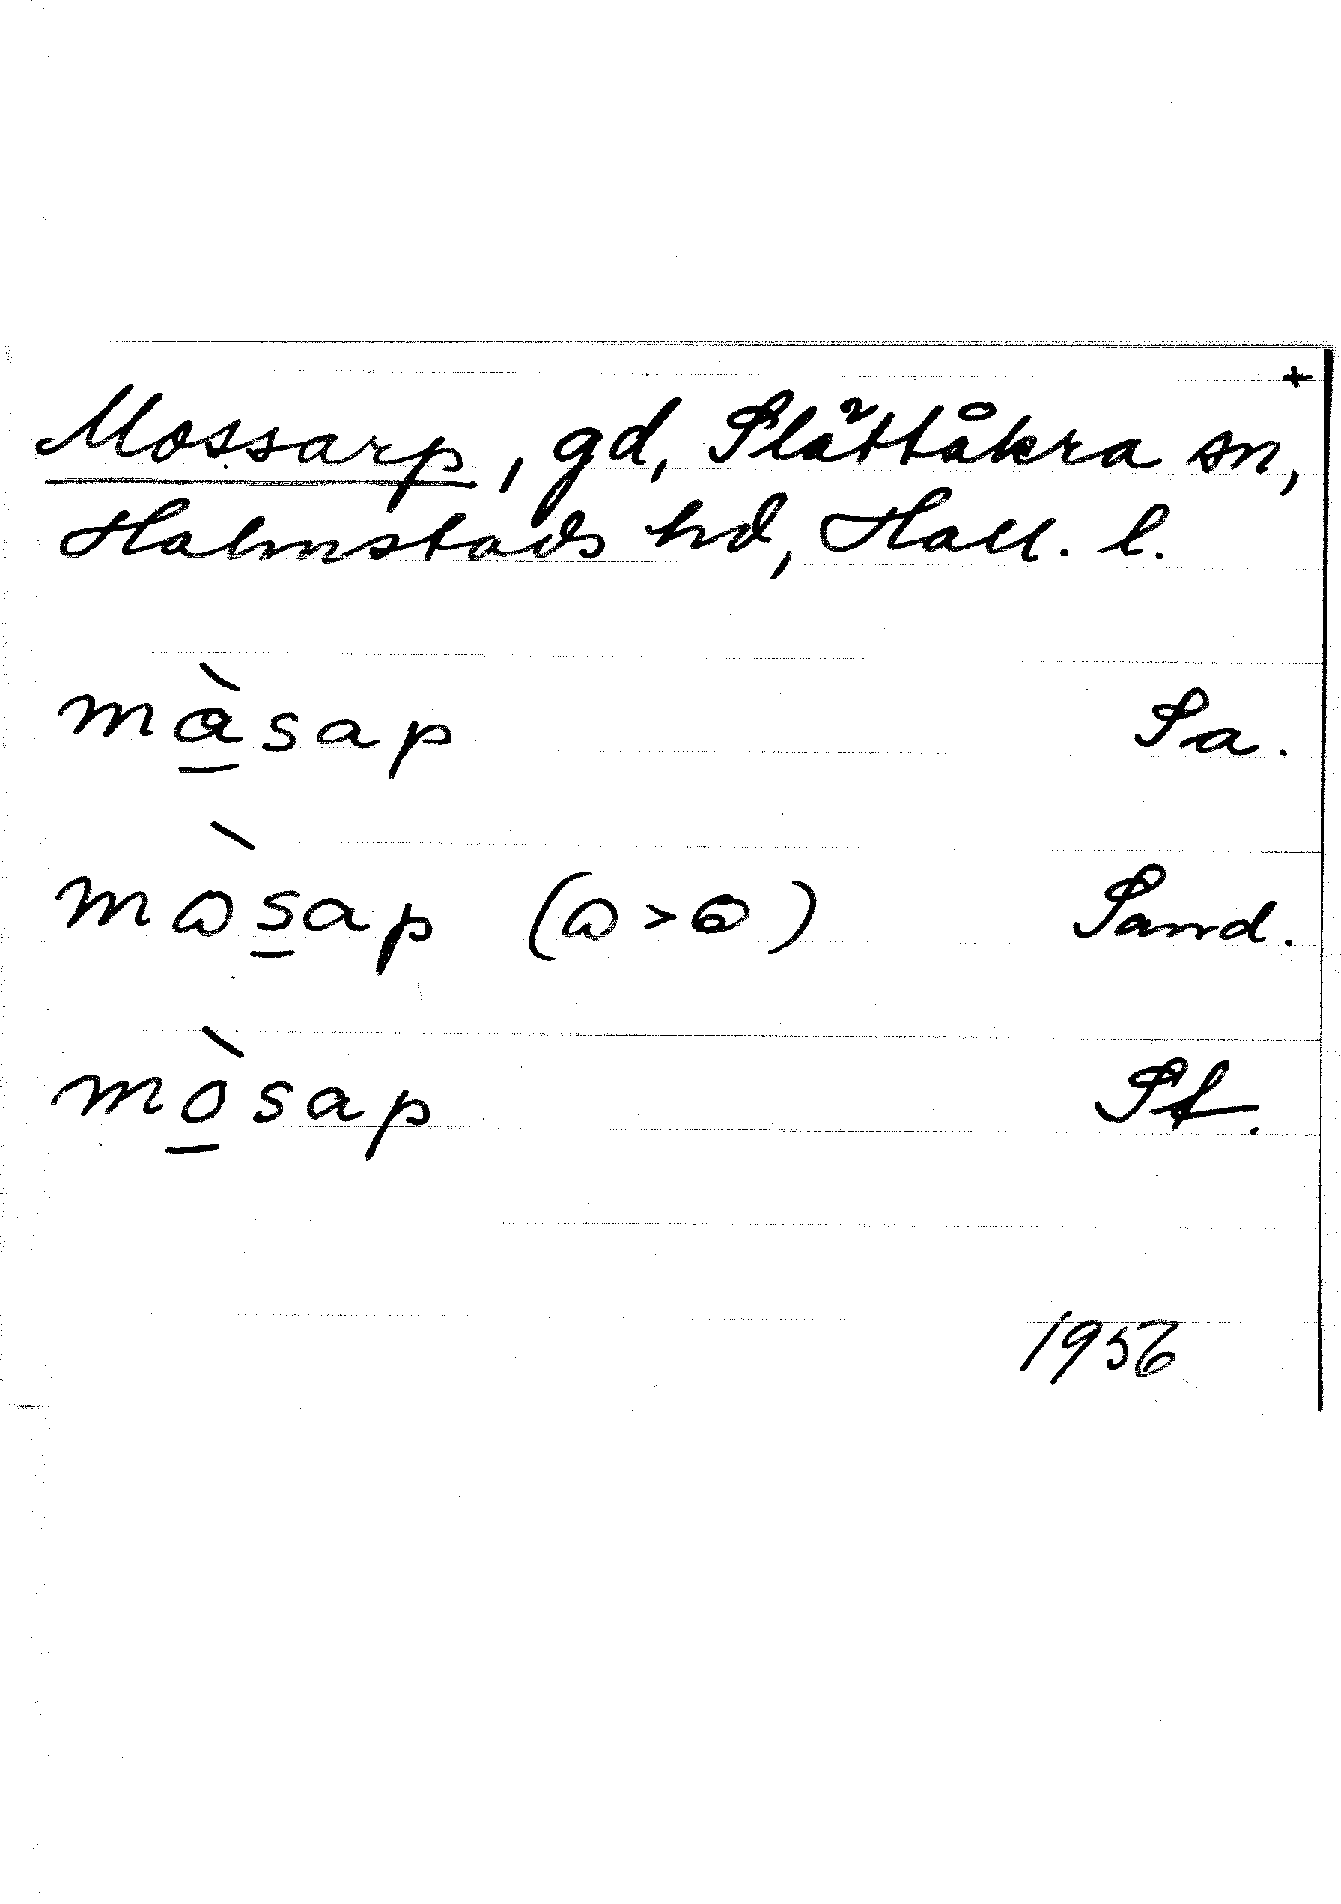 +
Mossarp, gd, Slättåkra sn,
Halmstads hd, Hall. l.
màsap Sa.
mòsap (ɷ > ɵ) Sand.
mòsap St.
1956